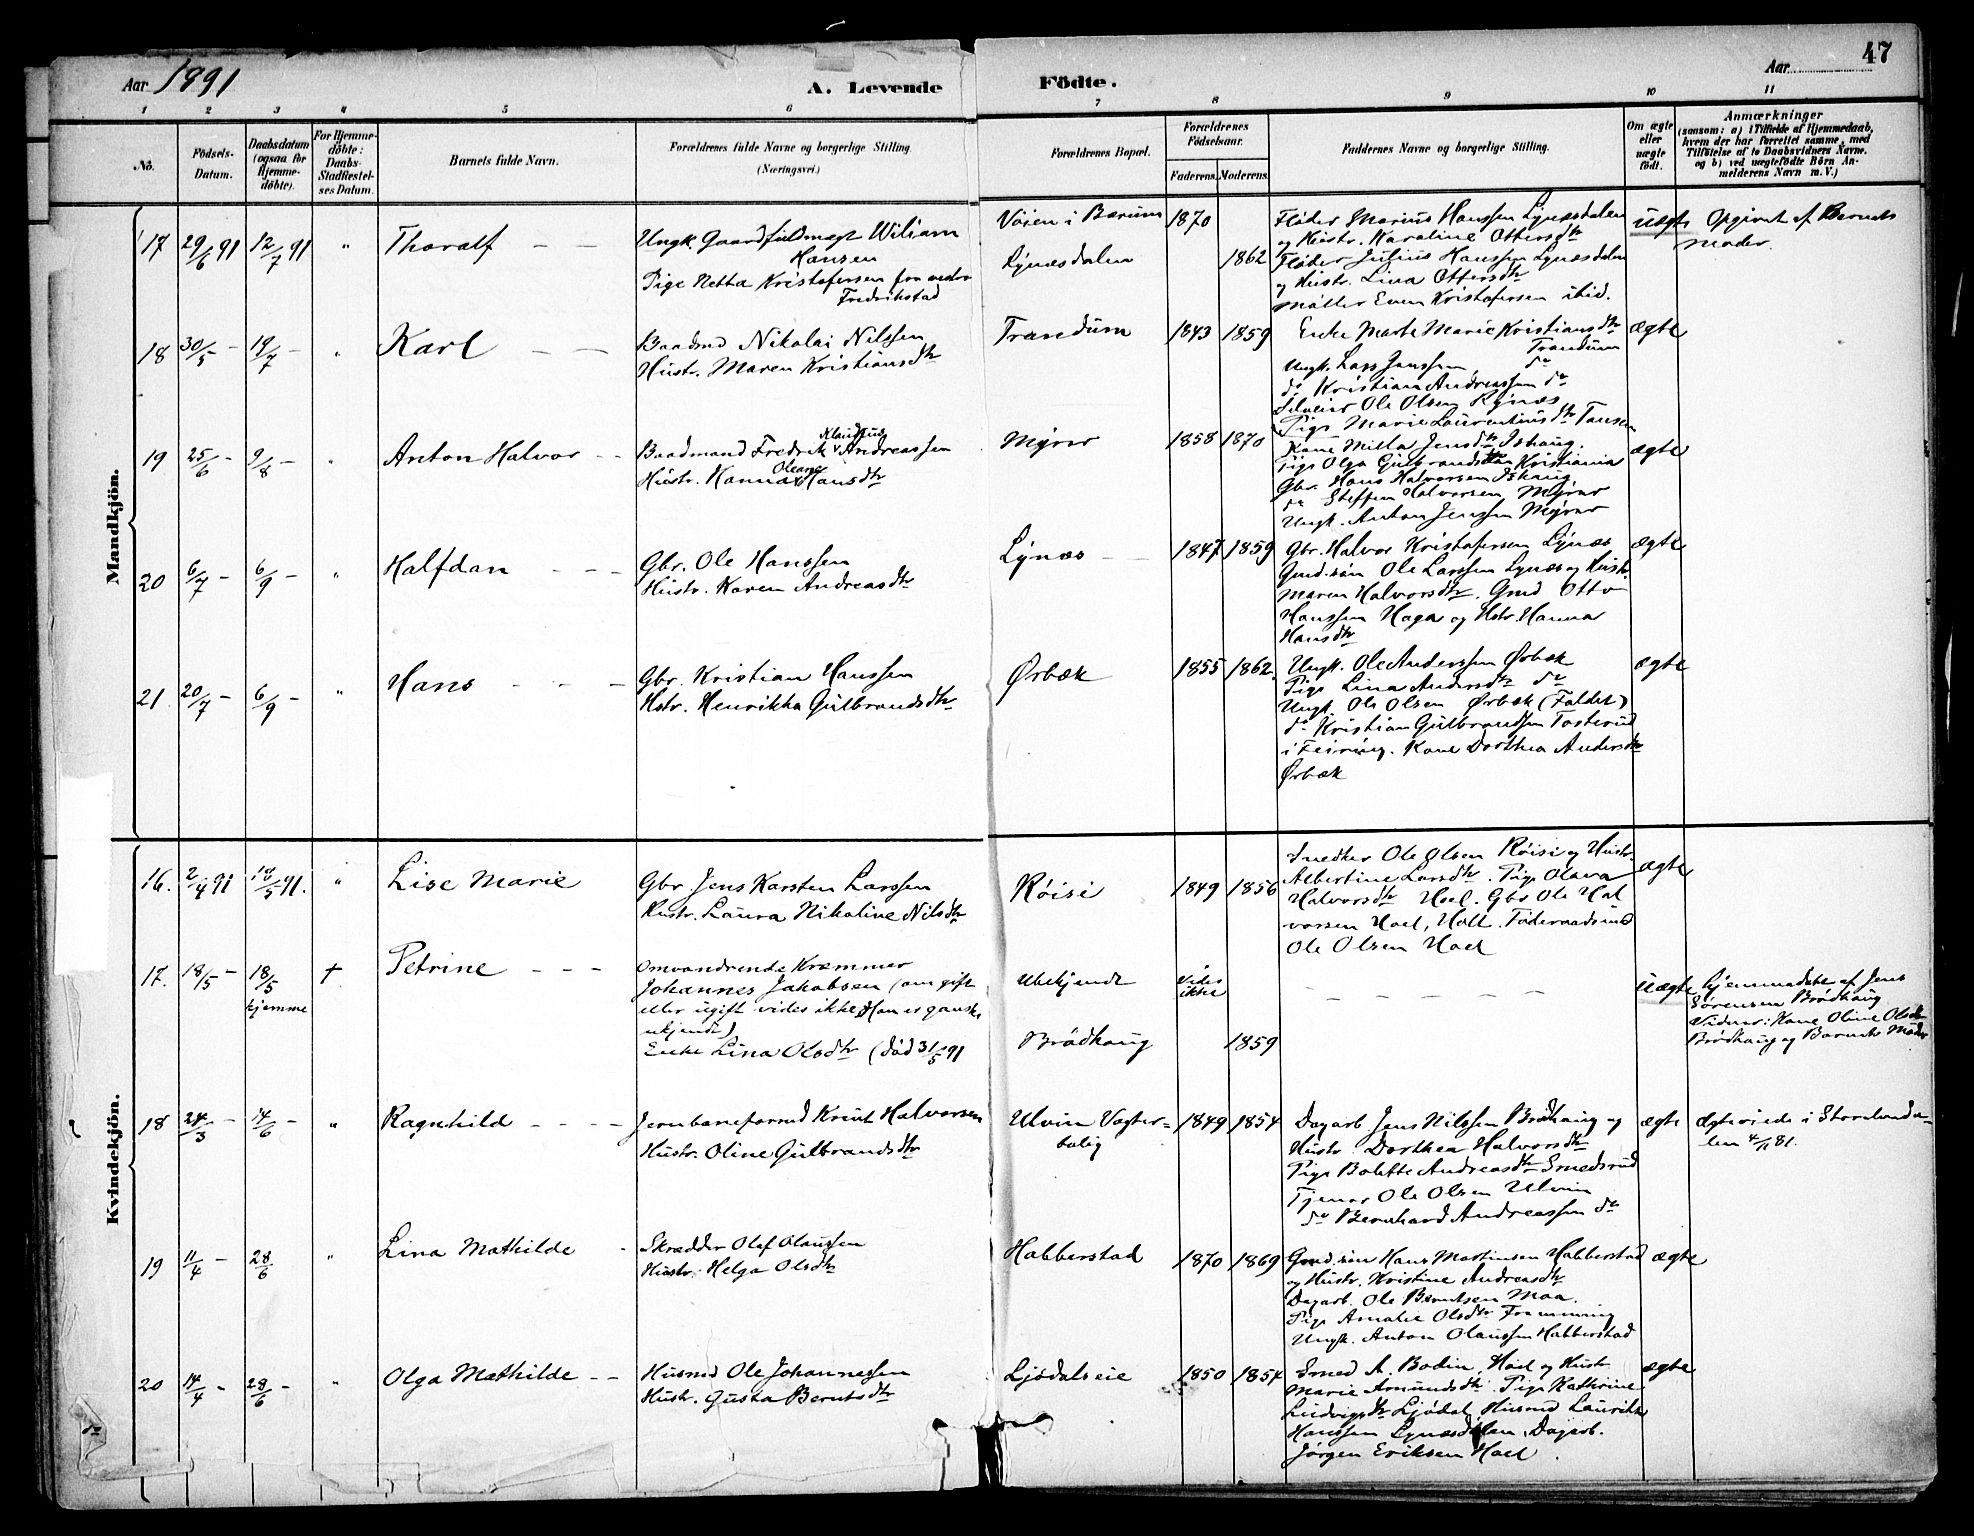 47
Aar 1891
A. Levende Födte.
Aar
1 2 3 4 5 6 7 8 9 10 11
No.
Födsels-Datum.
Daabsdatum (ogsaa for Hjemme-döbte).
For Hjemme-döbte: Daabs-Stadfæstel-ses Datum.
Barnets fulde Navn.
Forældrenes fulde Navne og borgerlige Stilling. (Næringsvei.)
Forældrenes Bopæl.
Forældrenes Födselsaar.
Faderens. Moderens.
Faddernes Navne og borgerlige Stilling.
Om ægte eller uægte födt.
Anmærkninger
(saasom: a) i Tilfælde af Hjemmedaab, hvem der har forrettet samme, med Tilföielse af to Daabsvidners Navne. og b) ved uægtefödte Börn An-melderens Navn m. V.)
Mandkjön.
17 29/6 91 12/7 91 " Thoralf
Ungk. Gaardfuldmægt Wiliam
Hansen
Pige Netta Kristofersen fra vestre
Fredrikstad
Vöien i Bærum 1870
Lynæsdalen 1862
Fløder Marius Hanssen Lynæsdalen
og Hustr. Karoline Ottersdtr
Fløder Julius Hanssen Lynæsdalen
og Hustr. Lina Ottersdtr
Møller Even Kristofersen ibid.
uægte Opgivet af Barnets
Moder.
18 30/5 – 19/7 – " Karl
Baadmd Nikolai Nilssen
Hustr. Maren Kristiansdtr
Trandum 1843 1859
Enke Marte Marie Kristiansdtr
Trandum
Ungk. Lars Janssen do
do Kristian Andreassen do
Selveier Ole Olsen Rynæs
Pige Marie Laurentiusdtr
ægte
19 25/6 – 9/8 – " Anton Halvor
Baadmand Fredrik Klaudius Andreassen
Hustr. Hanna Oleane Hansdtr
Myrer 1858 1870
Kone Milla Jensdtr Ishaug.
Pige Olga Gulbrandsen Kristiania
Gbr. Hans Halvorsen Ishaug
do Steffen Halvorsen Myrer
Ungk. Anton Jenssen Myrer
ægte
20 6/7 – 6/9 – " Halfdan
Gbr. Ole Hanssen
Hustr. Karen Andreasdtr
Lynæs 1847 1859
Gbr. Halvor Kristofersen Lynæs
Gmd.søn Ole Larssen Lynæs og Hustr.
Maren Halvorsdtr. Gmd Otto
Hanssen Haga og Hstr. Hanna
Hansdtr
ægte
21. 20/7 – 6/9 – " Hans
Gbr. Kristian Hanssen
Hstr. Henrikka Gulbrandsdtr
Ørbæk 1855 1862.
Ungk. Ole Anderssen Ørbæk
Pige Lina Andersdtr do
Ungk. Ole Olsen Ørbæk (Faldet)
do Kristian Gulbrandsen Tosterud
i Feiring. Kone Dorthea Andersdtr
Ørbæk
ægte
Kvindekjön.
16. 2/4 91 18/5 91. " Lise Marie
Gbr Jens Karsten Larssen
Hustr. Laura Nikoline Nilsdtr
Røisi 1849 1856
Snedker Ole Olsen Røisi og Hustr.
Albertine Larsdtr. Pige Olava
Halvorsdtr Hoel. Gbr Ole Hal
vorsen Hoel, Holt. Føderaadsmd
Ole Olsen Hoel
ægte
17. 18/5 – 18/5 hjemme † Petrine
Omvandrende Kræmmer
Johannes Jakobsen (om gift
eller ugift vides ikke, Han er ganske
ukjendt)
Enke Lina Olsdtr (død 31/5 91
Ubekjendt Vides ikke
Brådhaug 1859
uægte hjemmedøbt af Jens
Sørensen Brådhaug
Vidner: Kone Oline Olsdtr
Brådhaug og Barnets Moder
18 24/3 – 14/6 – " Ragnhild
Jernbaneformd Knut Halvorsen
Hustr. Oline Gulbrandsdtr
Ulvin Vogter-
bolig
1849 1854
Dagarb Jens Nilssen Brådhaug og
Hustr Dorthea Halvorsdtr
Pige Bolette Andreasdtr Smedsrud
Tjener Ole Olsen Ulvin
do Bernhard Andreassen do
ægte Ægteviede i Storelvda-
len 4/ 81.
19 11/4 – 28/6 " Lina Mathilde
Skrædder Olaf Olaussen
Hustr. Helga Olsdtr
Habberstad 1870 1869
Gmd.søn Hans Martinsen Habberstad
og Hustr. Kristine Andreasdtr
Dagarb. Ole Berntsen Moa.
Pige Amalie Olsdtr Fremming
Ungk. Anton Olaussen Habberstad
ægte
20 14/4 – 28/6 – " Olga Mathilde
Husmd Ole Johannessen
Hustr. Gusta Berntsdtr
Ljødalseie 1850 1854
Smed A. Bodin, Hoel og Hustr
Marie Amundsdtr. Pige Kathrine
Ludvigsdtr Ljødal, Husmd Laurits
Hanssen Lynæsdalen, Dagarb.
Jørgen Eriksen Hoel
ægte